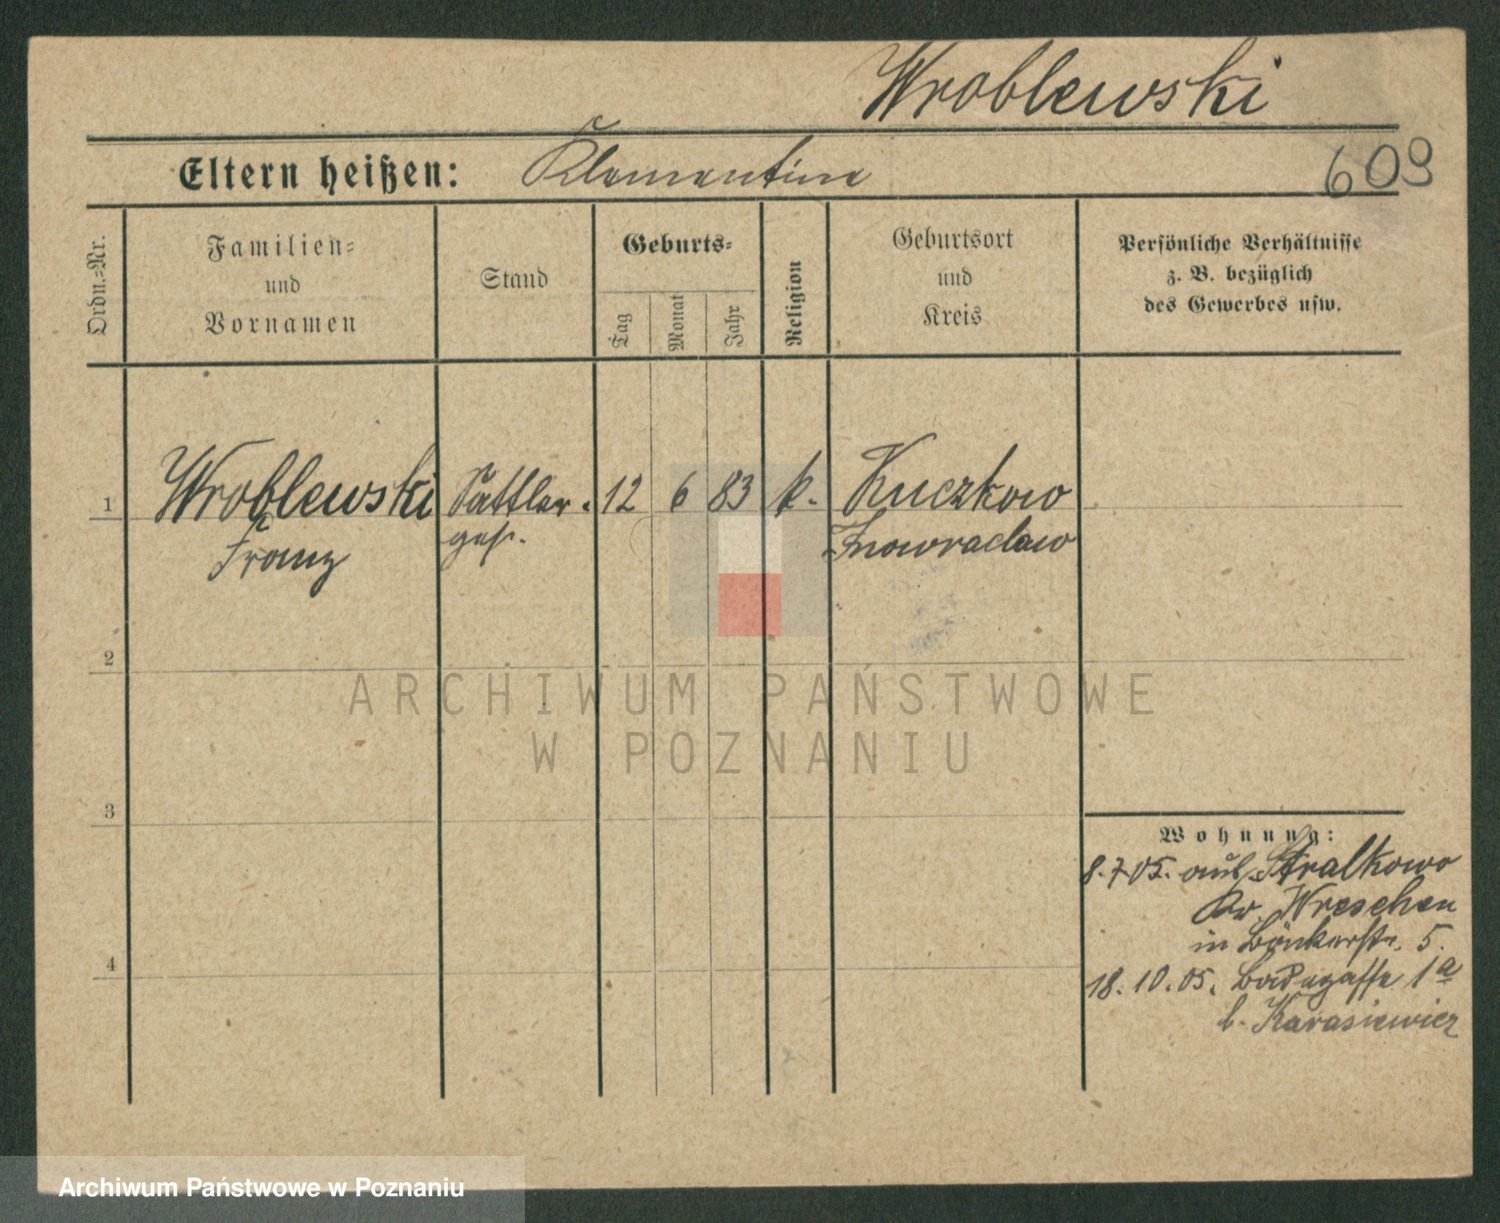 Wroblewski
Eltern heißen: Klementine
609
Ordn.-Nr.
Familien-
und
Vornamen
Stand
Geburts-
Tag
Monat
Jahr
Religion
Geburtsort
und
Kreis
Persönliche Verhältnisse
z. B. bezüglich
des Gewerbes usw.
1 Wroblewski Sattler- 12 6 83 k. Kuczkowo
Franz ges. Inowraclaw
2
ARCHIWUM PAŃSTWOWE
W POZNANIU
3
Wohnung:
8.7.05. aus Stralkowo
Kr. Wreschen
in Bäckerstr. 5.
4
18.10.05. Badegasse 1a
b. Karasiewicz
Archiwum Państwowe w Poznaniu